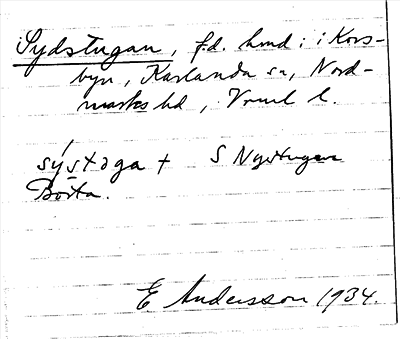 Sydstugan, f.d. hmd: i Kors-
byn, Karlanda sn, Nord-
marks hd, Vrml l.
sýstəga + S Nystugan
Borta.
E Andersson 1934.